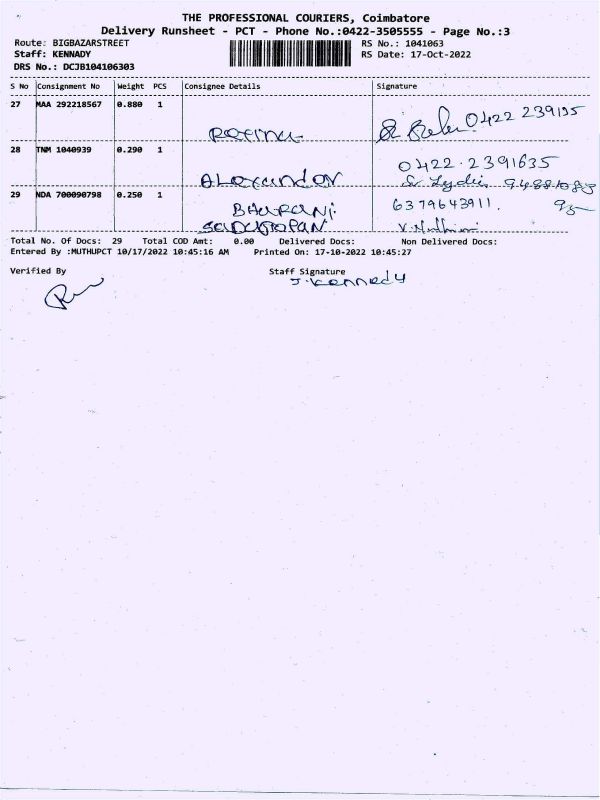 THE PROFESSIONAL COURIERS, Coimbatore
Delivery Runsheet - PCT - Phone No.:0422-3505555 - Page No.:3
Route: BIGBAZARSTREET
RS No.: 1041063
Staff: KENNADY
RS Date: 17-Oct-2022
DRS No.: DCJB104106303
S No Consignment No Weight PCS Consignee Details Signature
27 MAA 292218567 0.880 1 0422 239195
28 TNM 1040939 0.290 1 ALexander 0422.2391635
Sr. Lydia
29 NDA 700090798 0.250 1 BHARANI 6379643911.
95
Total No. Of Docs: 29 Total COD Amt: 0.00 Delivered Docs: Non Delivered Docs:
Entered By :MUTHUPCT 10/17/2022 10:45:16 AM Printed On: 17-10-2022 10:45:27
Verified By
Staff Signature
J. Kennady